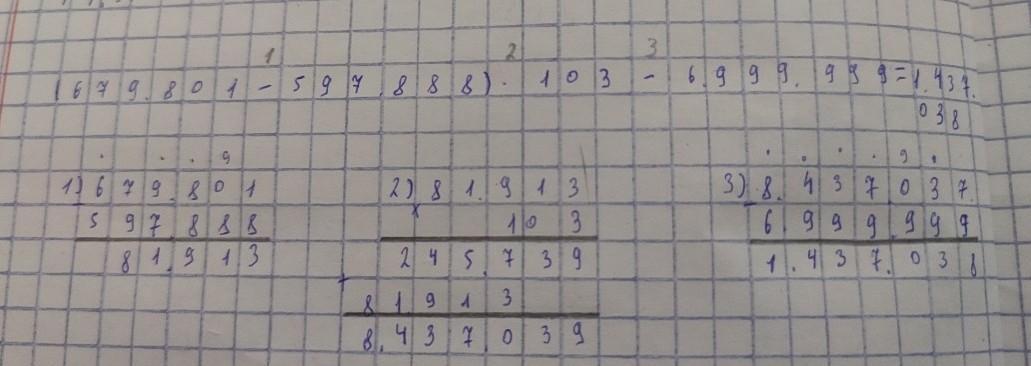 1 2 3
(679.801-597.888).103-6.999.999=1.437.
038
. . . 9 . . . . 9 .
1) 679.801 2) 81.913 3) 8.437.037.
597.888 × 103 - 6.999.999
81.913 245.739 1.437.038
+ 81913
8.437.039